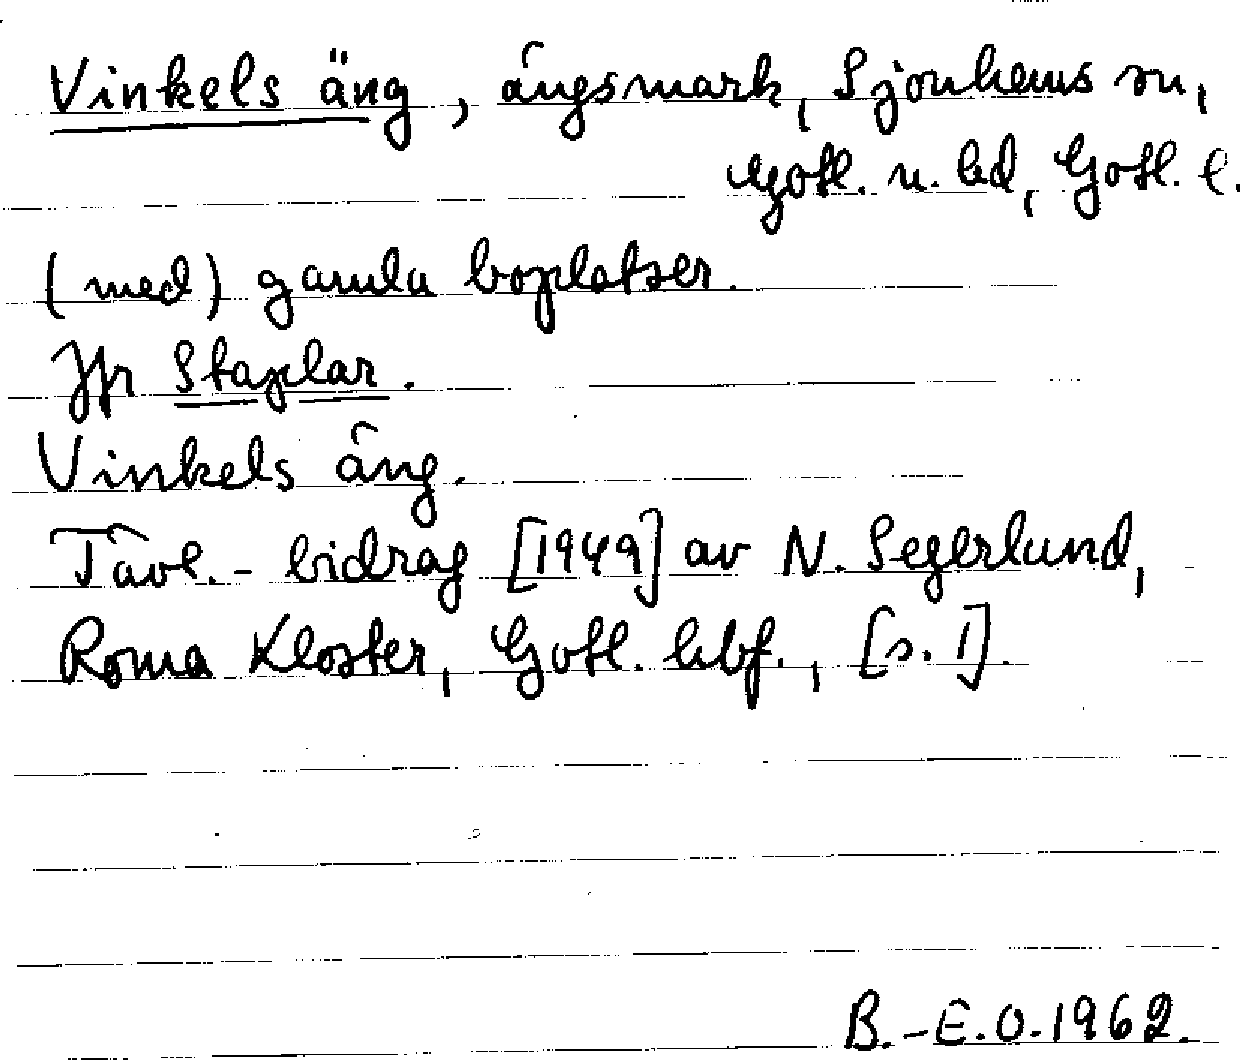 Vinkels äng, ängsmark, Sjonhems sn,
Gotl. n. hd, Gotl. l.
(med) gamla boplatser.
Jfr Staplar.
Vinkels äng.
Tävl.-bidrag [1949] av N. Segerlund,
Roma Kloster, Gotl. hbf., [s. 1].
B.-E.O.1962.